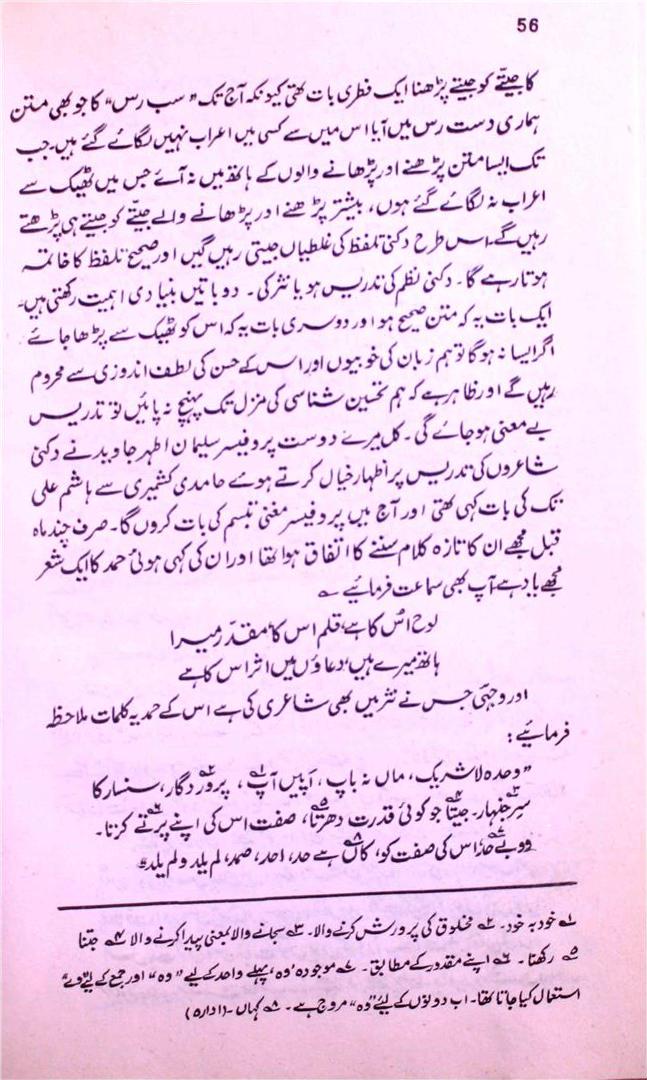 56
کا جیتّے کو جیتے پڑھنا ایک فطری بات تھی کیونکہ آج تک "سب رس" کا جو بھی متن
ہماری دست رس میں آیا اس میں سے کسی میں اعراب نہیں لگائے گئے ہیں۔ جب
تک ایسا متن پڑھنے اور پڑھانے والوں کے ہاتھ میں نہ آئے جس میں ٹھیک سے
اعراب نہ لگائے گئے ہوں، بیشتر پڑھنے اور پڑھانے والے جیتّے کو جیتے ہی پڑھتے
رہیں گے۔ اس طرح دکنی تلفظ کی غلطیاں جیتی رہیں گیں اور صحیح تلفظ کا خاتمہ
ہوتا رہے گا۔ دکنی نظم کی تدریس ہو یا نثر کی۔ دو باتیں بنیادی اہمیت رکھتی ہیں۔
ایک بات یہ کہ متن صحیح ہو اور دوسری بات یہ کہ اس کو ٹھیک سے پڑھا جائے
اگر ایسا نہ ہوگا تو ہم زبان کی خوبیوں اور اس کے حسن کی لطف اندوزی سے محروم
رہیں گے اور ظاہر ہے کہ ہم تحسین شناسی کی منزل تک پہنچ نہ پائیں تو تدریس
بے معنی ہو جائے گی۔ کل میرے دوست پروفیسر سلیمان اطہر جاوید نے دکنی
شاعروں کی تدریس پر اظہار خیال کرتے ہوے حامدی کشمیری سے ہاشم علی
تک کی بات کہی تھی اور آج میں پروفیسر مغنی تبسم کی بات کروں گا۔ صرف چند ماہ
قبل مجھے ان کا تازہ کلام سننے کا اتفاق ہوا تھا اور ان کی کہی ہوئی حمد کا ایک شعر
مجھے یاد ہے آپ بھی سماعت فرمائیے ؎
لوح اُس کا ہے، قلم اس کا، مقدّر میرا
ہاتھ میرے ہیں، دعاؤں میں اثر اس کا ہے
اور وجہی جس نے نثر میں بھی شاعری کی ہے اس کے حمدیہ کلمات ملاحظہ
فرمائیے:
"وحدہ لاشریک، ماں نہ باپ، آپیں آپ۱، پروردگار۲، سنسار کا
سیرجنہار۳۔ جیتا۴ جو کوئی قدرت دھرتا۵، صفت اس کی اپنے پرتے۶ کرتا۔
وو۷ بے حد، اس کی صفت کو، کاں۸ ہے حد، احد، صمد، لم یلد و لم یلد"
۱ خود بہ خود۔ ۲ مخلوق کی پرورش کرنے والا۔ ۳ سجانے والا یعنی پیدا کرنے والا ۴ جتنا
۵ رکھتا۔ ۶ اپنے مقدور کے مطابق۔ ۷ موجودہ وہ، پہلے واحد کے لیے "وہ" اور جمع کے لیے "وے"
استعمال کیا جاتا تھا۔ اب دونوں کے لیے "وہ" مروج ہے۔ ۸ کہاں۔ (ادارہ)